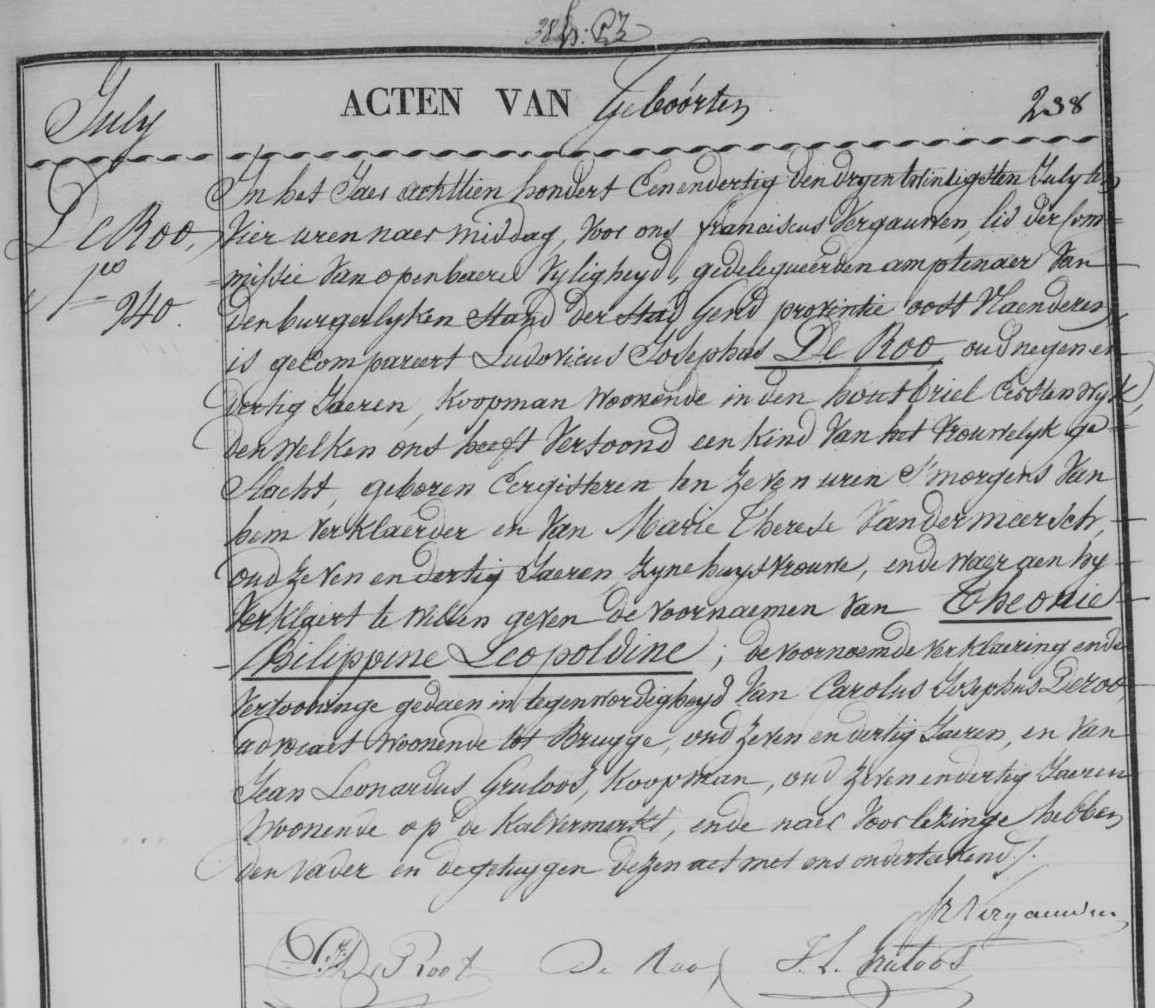 July
ACTEN VAN Geboórten
238
De Roo,
Nro 940.
In het Jaer achttien hondert Eenendertig den dryentwintigsten July ten
Vier uren naer middag, Voor ons franciscus Vergauwen, lid der Com=
=missie Van openbaere Vyligheyd, gedelegueerden amptenaer Van
den burgerlyken Stand der Stad Gend provintie oost Vlaenderen,
is gecompareert Ludovicus Josephus De Roo, oud negen en
dertig Jaeren, Koopman Woonende in den houtbriel Eersten Wyk,
den Welken ons heeft Vertoond een Kind Van het Vrouwelyk ge=
Slacht, geboren Eergisteren ten Zeven uren S'morgens Van
hem Verklaerder en Van Marie Therese Vandermeersch,
oud Zeven en dertig Jaeren Zyne huysvrouwe, ende waer aen hy
Verklaert te Willen geven de Voornaemen Van Theonie
Philippine Leopoldine; de voornoemde Verklaering ende
Vertooninge gedaen in tegenwordigheyd Van Carolus Josephus Deroo,
advocaet Woonende tot Brugge, oud Zeven en dertig Jaeren, en Van
Jean Leonardus Gruloos, Koopman, oud Zeven en dertig Jaeren
Woonende op de Kalvermerkt, ende naer Voorlezinge hebben
den Vader en de getuygen dezen act met ons onderteekend /.
Vergauwen
De Roo J. L. Gruloos